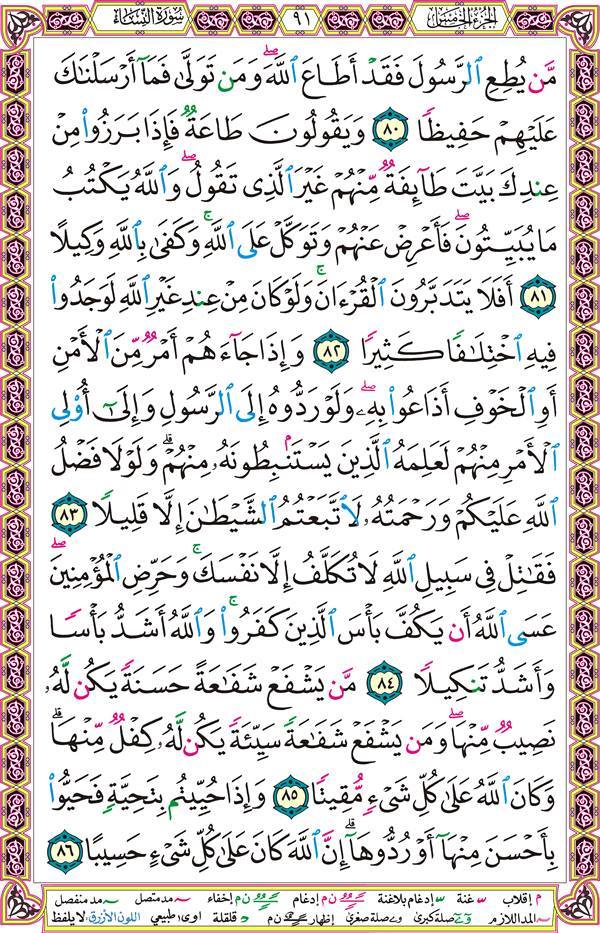 سُورَةُ النِّسَاءِ ٩١ الجُزْءُ الخَامِسُ
مَّن يُطِعِ ٱلرَّسُولَ فَقَدْ أَطَاعَ ٱللَّهَ ۖ وَمَن تَوَلَّىٰ فَمَآ أَرْسَلْنَٰكَ
عَلَيْهِمْ حَفِيظًا ٨٠ وَيَقُولُونَ طَاعَةٌ فَإِذَا بَرَزُوا۟ مِنْ
عِندِكَ بَيَّتَ طَآئِفَةٌ مِّنْهُمْ غَيْرَ ٱلَّذِى تَقُولُ ۖ وَٱللَّهُ يَكْتُبُ
مَا يُبَيِّتُونَ ۖ فَأَعْرِضْ عَنْهُمْ وَتَوَكَّلْ عَلَى ٱللَّهِ ۚ وَكَفَىٰ بِٱللَّهِ وَكِيلًا
٨١ أَفَلَا يَتَدَبَّرُونَ ٱلْقُرْءَانَ ۚ وَلَوْ كَانَ مِنْ عِندِ غَيْرِ ٱللَّهِ لَوَجَدُوا۟
فِيهِ ٱخْتِلَٰفًا كَثِيرًا ٨٢ وَإِذَا جَآءَهُمْ أَمْرٌ مِّنَ ٱلْأَمْنِ
أَوِ ٱلْخَوْفِ أَذَاعُوا۟ بِهِۦ ۖ وَلَوْ رَدُّوهُ إِلَى ٱلرَّسُولِ وَإِلَىٰٓ أُو۟لِى
ٱلْأَمْرِ مِنْهُمْ لَعَلِمَهُ ٱلَّذِينَ يَسْتَنۢبِطُونَهُۥ مِنْهُمْ ۗ وَلَوْلَا فَضْلُ
ٱللَّهِ عَلَيْكُمْ وَرَحْمَتُهُۥ لَٱتَّبَعْتُمُ ٱلشَّيْطَٰنَ إِلَّا قَلِيلًا ٨٣
فَقَٰتِلْ فِى سَبِيلِ ٱللَّهِ لَا تُكَلَّفُ إِلَّا نَفْسَكَ ۚ وَحَرِّضِ ٱلْمُؤْمِنِينَ ۖ
عَسَى ٱللَّهُ أَن يَكُفَّ بَأْسَ ٱلَّذِينَ كَفَرُوا۟ ۚ وَٱللَّهُ أَشَدُّ بَأْسًا
وَأَشَدُّ تَنكِيلًا ٨٤ مَّن يَشْفَعْ شَفَٰعَةً حَسَنَةً يَكُن لَّهُۥ
نَصِيبٌ مِّنْهَا ۖ وَمَن يَشْفَعْ شَفَٰعَةً سَيِّئَةً يَكُن لَّهُۥ كِفْلٌ مِّنْهَا ۗ
وَكَانَ ٱللَّهُ عَلَىٰ كُلِّ شَىْءٍ مُّقِيتًا ٨٥ وَإِذَا حُيِّيتُم بِتَحِيَّةٍ فَحَيُّوا۟
بِأَحْسَنَ مِنْهَآ أَوْ رُدُّوهَآ ۗ إِنَّ ٱللَّهَ كَانَ عَلَىٰ كُلِّ شَىْءٍ حَسِيبًا ٨٦
م إقلاب غنة إدغام بلاغنة ن م إدغام ن م إخفاء مد متصل مد منفصل
المد اللازم صلة كبرى صلة صغرى إظهار ن م قلقلة اوى: طبيعي اللون الأزرق: لا يلفظ